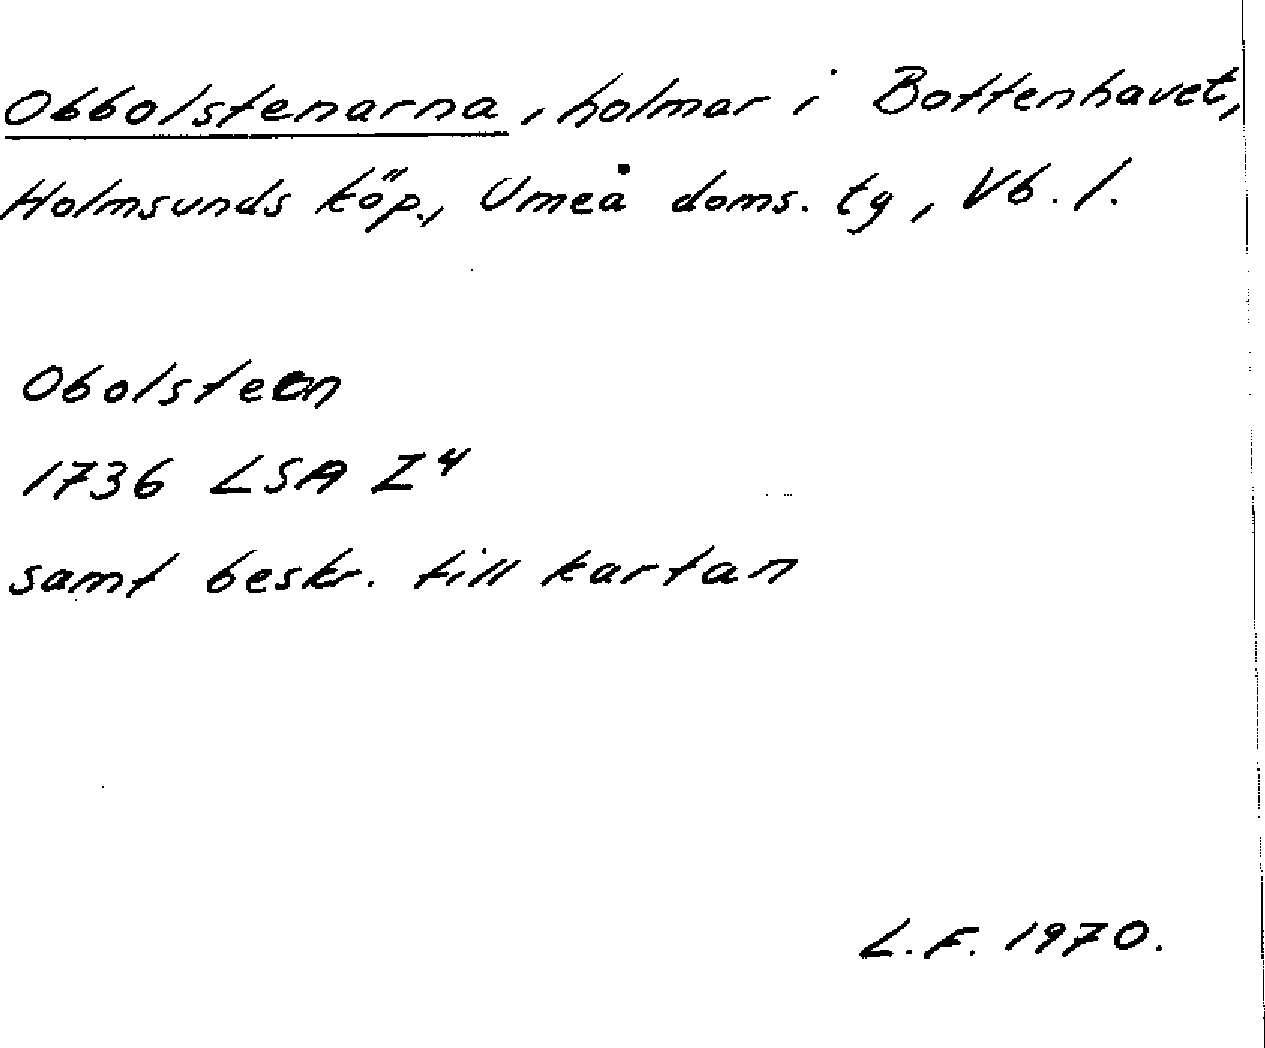 Obbolstenarna, holmar i Bottenhavet,
Holmsunds köp., Umeå doms. tg, Vb. l.
Obolsteen
1736 LSA Z4
samt beskr. till kartan
L.F. 1970.